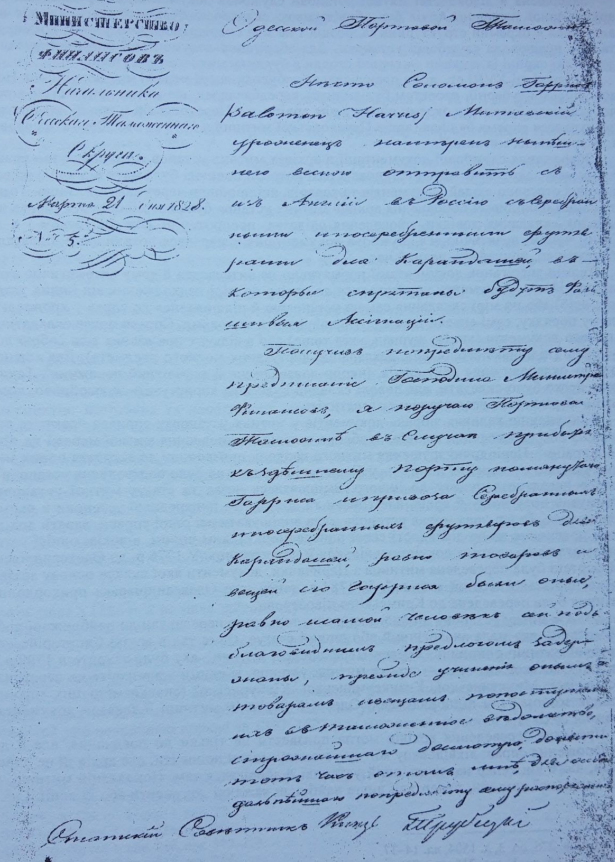 МИНИСТЕРСТВО
ФИНАНСОВЪ
Начальника
Одесскаго Таможеннаго
Округа.
Марта 21 дня 1828.
№ 5.
Одесской Портовой Таможнѣ
Нѣкто Соломонъ Гаррисъ
(Salomon Harris) Митавский
уроженецъ намѣренъ нынѣш-
нею весною отправиться
изъ Англіи въ Россію съ серебрян
ными и посеребренными футля-
рами для Карандашей, въ
которыя спрятаны будутъ Фаль
шивыя Ассигнаціи.
Получивъ по предмѣту сему
предписаніе Господина Министра
Финансовъ, я поручаю Портовой
Таможнѣ въ случаѣ прибытія
къ здѣшнему порту помянутаго
Гарриса и привоза Серебряныхъ
и посеребряныхъ футляровъ для
Карандашей, равно товаровъ и
вещей его Гарриса были оные,
равно и самой человѣкъ сей подъ
благовиднымъ предлогомъ задер-
жаны, прежде учинить онымъ
товарамъ и вещамъ по поступленіи
ихъ въ таможенное вѣдомство,
строжайшаго досмотра, донести
тотъ часъ о томъ мнѣ, для
дальнѣйшаго по предмѣту сему распоряженія
Статскій Совѣтникъ Князь Трубецкой